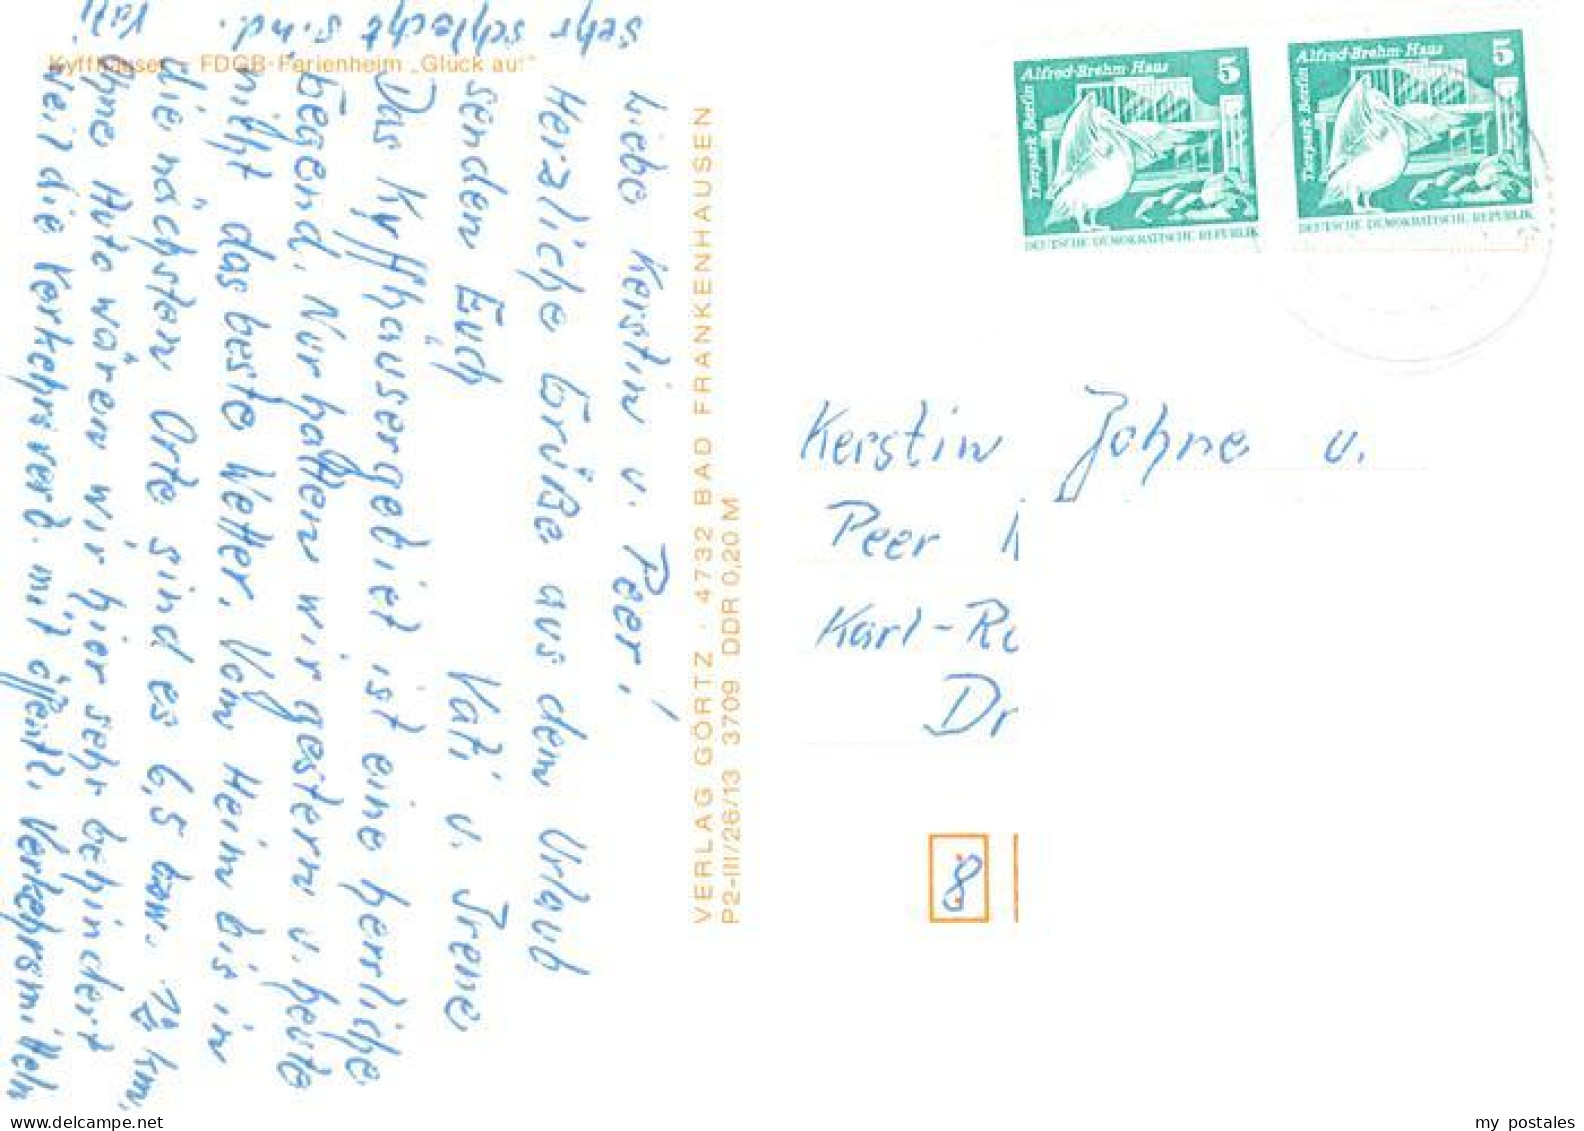 Kyffhäuser – FDGB-Ferienheim „Glück auf"
Liebe Kerstin u. Peer!
Herzliche Grüße aus dem Urlaub
senden Euch
Vati u. Irene
Das Kyffhäusergebiet ist eine herrliche
Gegend. Nur hatten wir gestern u. heute
nicht das beste Wetter. Vom Heim bis in
die nächsten Orte sind es 6,5 bzw. 12 km.
Ohne Auto wären wir hier sehr behindert
weil die Verkehrsverb. mit öffentl. Verkehrsmitteln
sehr schlecht sind.
Vati
VERLAG GÖRTZ · 4732 BAD FRANKENHAUSEN
P2-III/26/13 3709 DDR 0,20 M
Alfred-Brehm-Haus 5
Tierpark Berlin
DEUTSCHE DEMOKRATISCHE REPUBLIK
Alfred-Brehm-Haus 5
Tierpark Berlin
DEUTSCHE DEMOKRATISCHE REPUBLIK
Kerstin Johne u.
Peer
Karl-
8
www.delcampe.net
my postales